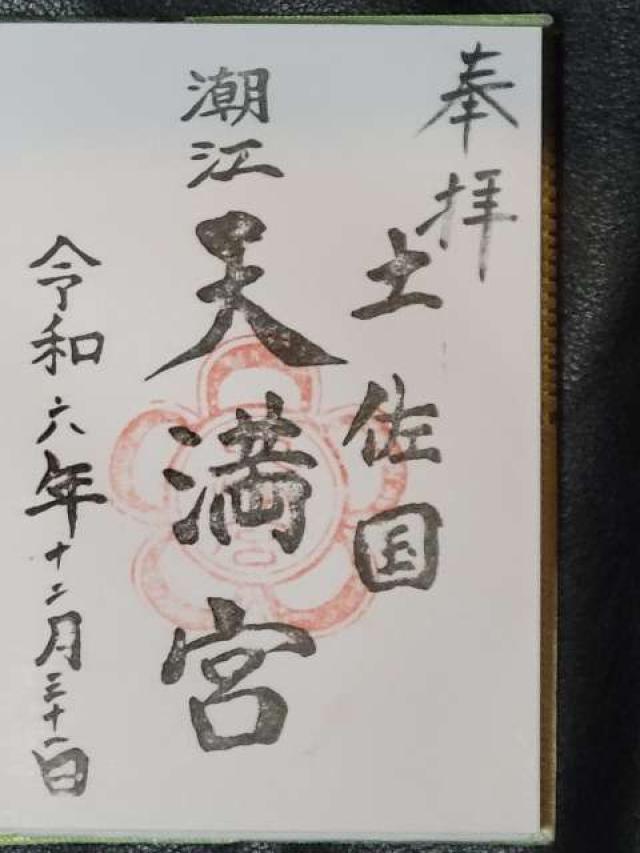 奉拝
土佐国
潮江
天満宮
令和六年十二月三十一日